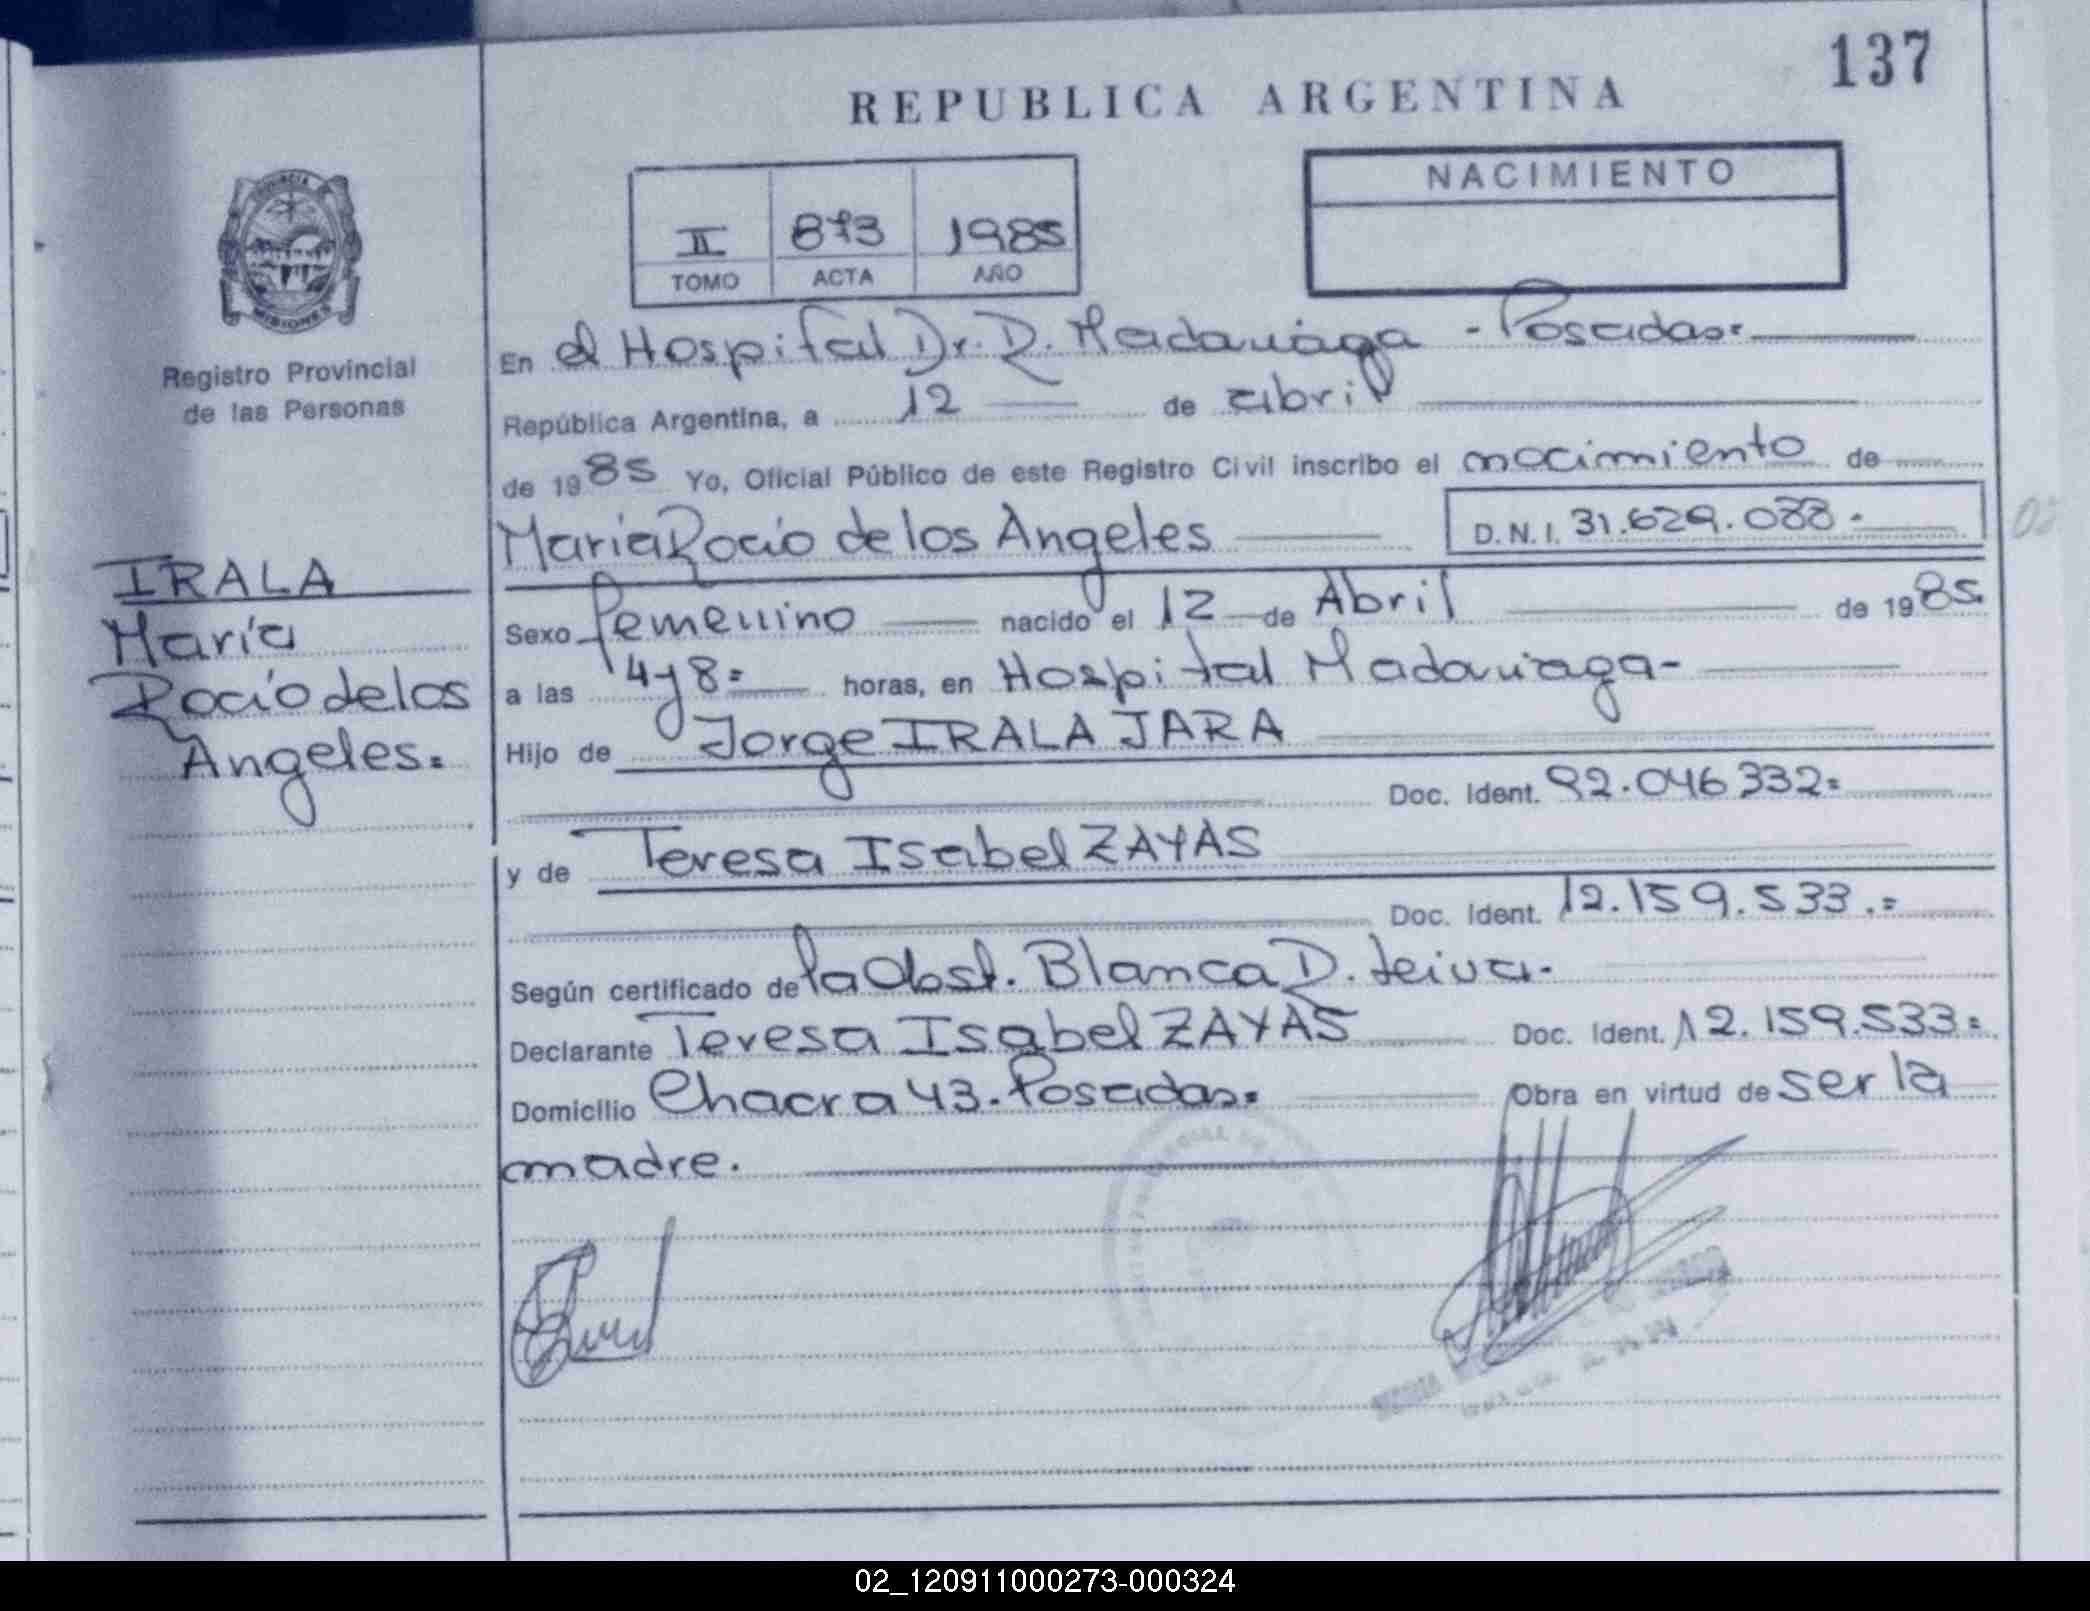 137
REPUBLICA ARGENTINA
NACIMIENTO
II 873 1985
TOMO ACTA AÑO
PROVINCIA DE
MISIONES
Registro Provincial
de las Personas
IRALA
María
Rocío de los
Angeles.
En el Hospital Dr. R. Madariaga - Posadas.
República Argentina, a 12 de abril
de 1985 Yo, Oficial Público de este Registro Civil inscribo el nacimiento de
María Rocío de los Angeles D.N.I. 31.629.088.
Sexo femenino nacido el 12 de Abril de 1985
a las 14y8= horas, en Hospital Madariaga-
Hijo de Jorge IRALA JARA
Doc. Ident. 92.046332=
y de Teresa Isabel ZAYAS
Doc. Ident. 12.159.533.=
Según certificado de la Obst. Blanca D. Leiva.
Declarante Teresa Isabel ZAYAS Doc. Ident. 12.159.533=
Domicilio Chacra 43. Posadas= Obra en virtud de ser la
madre.
02_120911000273-000324